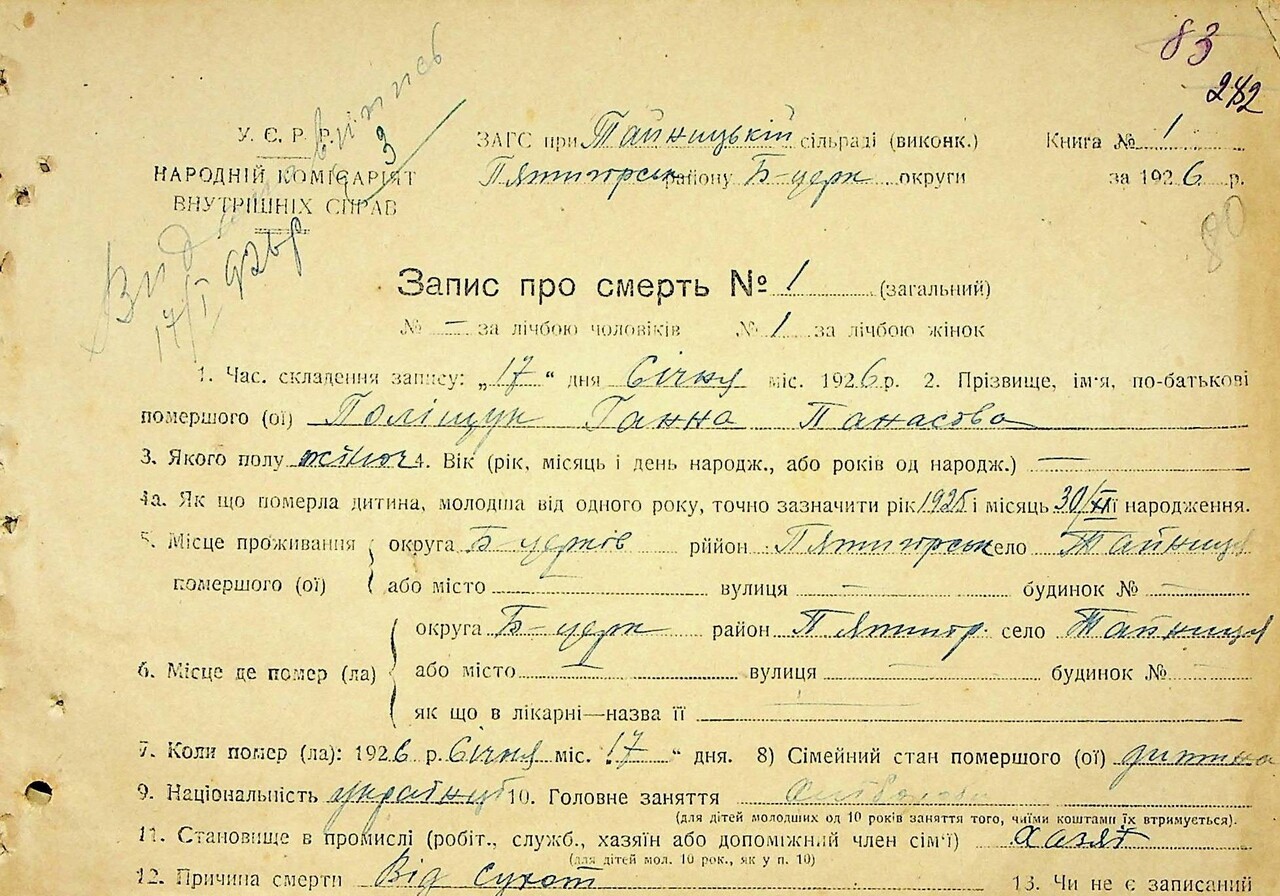 83
282
Видана випись
17/I 926р
3
У. Є. Р. Р.
НАРОДНІЙ КОМІСАРІЯТ
ВНУТРІШНІХ СПРАВ
ЗАГС при Тайницькій сільраді (виконк.)
Пятигорськ району Б-церк округи
Книга № 1
за 1926 р.
80
Запис про смерть № 1 (загальний)
№ — за лічбою чоловіків № 1 за лічбою жінок
1. Час складення запису: „17“ дня Січня міс. 1926 р. 2. Прізвище, ім'я, по-батькові
помершого (ої) Поліщук Ганна Панасова
3. Якого полу жіноч 4. Вік (рік, місяць і день народж., або років од народж.) —
4а. Як що померла дитина, молодша від одного року, точно зазначити рік 1925 і місяць 30/XII її народження.
5. Місце проживання округа Б церков рйійон Пятигорськ село Тайниця
помершого (ої) або місто вулиця — будинок № —
округа Б-церк район Пятигор. село Тайниця
6. Місце де помер (ла) або місто — вулиця — будинок № —
як що в лікарні—назва її —
7. Коли помер (ла): 1926 р. Січня міс. 17 “ дня. 8) Сімейний стан помершого (ої) дитина
9. Національність українц 10. Головне заняття
(для дітей молодших од 10 років заняття того, чиїми коштами їх втримується).
11. Становище в промислі (робіт., служб., хазяїн або допоміжний член сім'ї) хазяї
(для дітей мол. 10 рок., як у п. 10)
12. Причина смерти Від сухот 13. Чи не є записаний